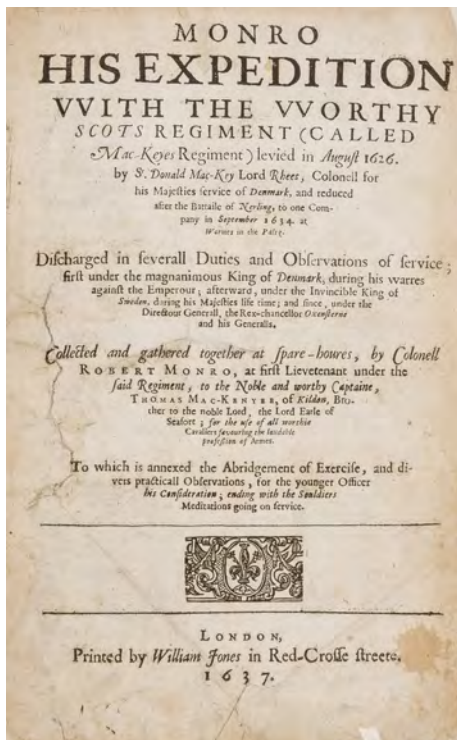 MONRO
HIS EXPEDITION
VVITH THE VVORTHY
SCOTS REGIMENT (CALLED
Mac-Keyes Regiment) levied in Auguſt 1626.
by Sr. Donald Mac-Key Lord Rhees, Colonell for
his Majeſties ſervice of Denmark, and reduced
after the Battaile of Nerling, to one Com-
pany in September 1634. at
Wormes in the Paltz.
Diſcharged in ſeverall Duties and Obſervations of ſervice;
firſt under the magnanimous King of Denmark, during his warres
againſt the Emperour; afterward, under the Invincible King of
Sweden, during his Majeſties life time; and ſince, under the
Directour Generall, the Rex-chancellor Oxenſterne
and his Generalls.
Collected and gathered together at ſpare-houres, by Colonell
ROBERT MONRO, at firſt Lievetenant under the
ſaid Regiment, to the Noble and worthy Captaine,
THOMAS MAC-KENYEE, of Kildon, Bro-
ther to the noble Lord, the Lord Earle of
Seafort; for the uſe of all worthie
Cavaliers favouring the laudable
profeſſion of Armes.
To which is annexed the Abridgement of Exerciſe, and di-
vers practicall Obſervations, for the younger Officer
his Conſideration; ending with the Souldiers
Meditations going on ſervice.
LONDON,
Printed by William Jones in Red-Croſſe ſtreete.
1637.